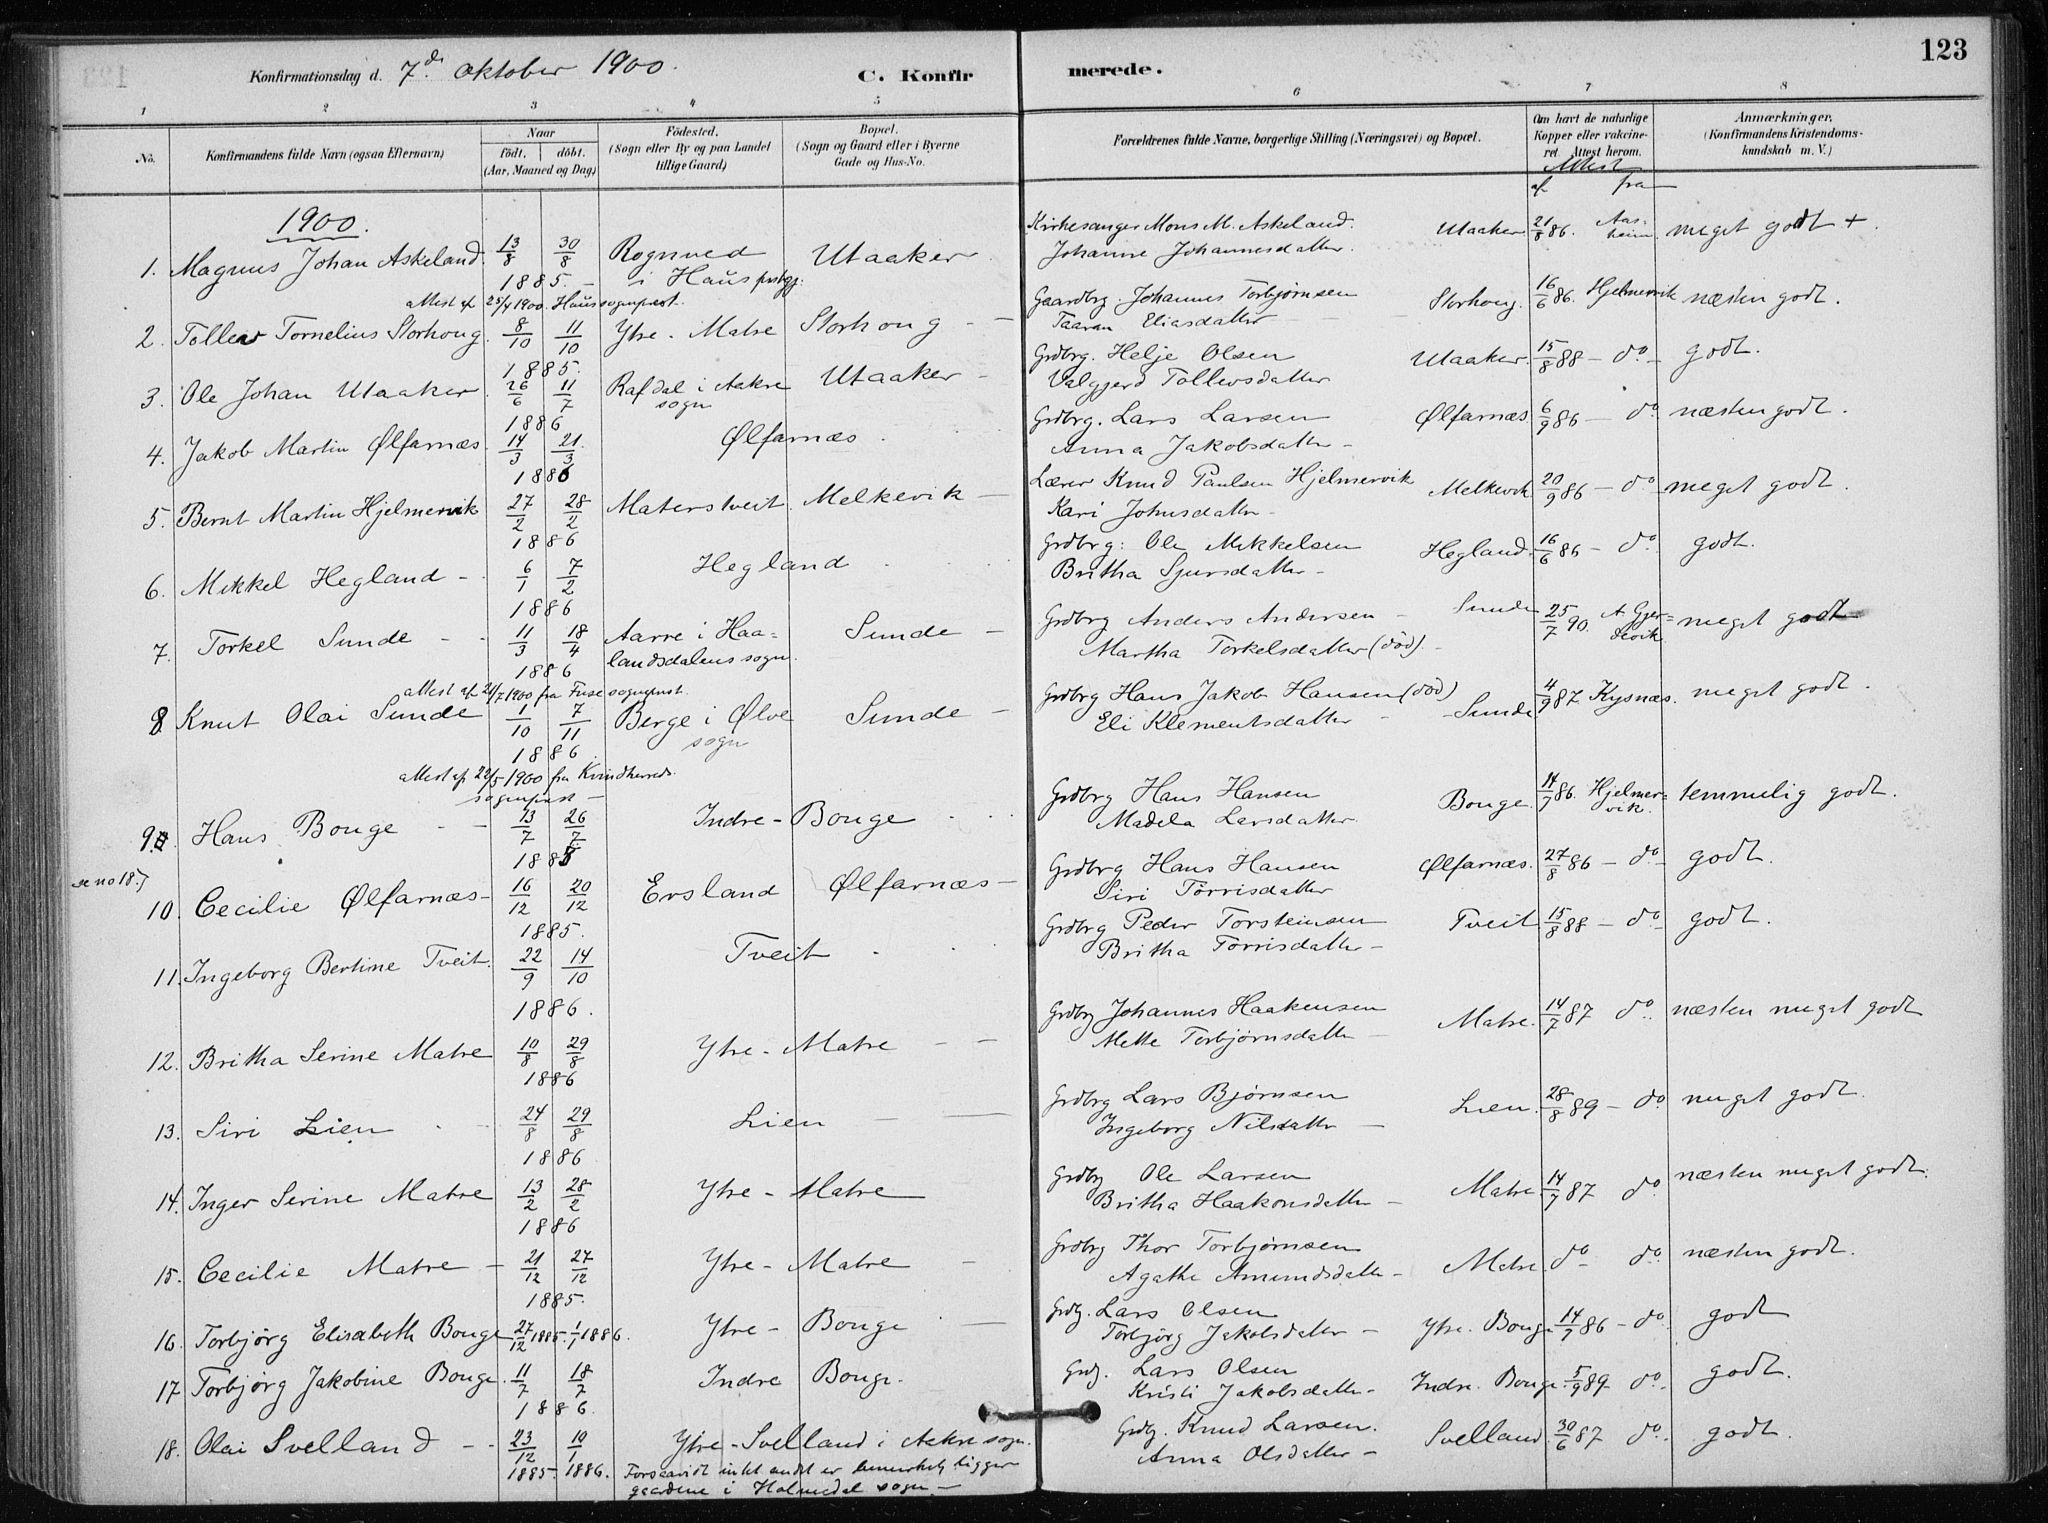 123
Konfirmationsdag d. 7de Oktober 1900.
C. Konfirmerede.
1 2 3 4 5 6 7 8
No.
Konfirmandens fulde Navn (ogsaa Efternavn)
Naar
født, døbt.
(Aar, Maaned og Dag)
Fødested.
(Sogn eller By og paa Landet
tillige Gaard)
Bopæl.
(Sogn og Gaard eller i Byerne
Gade og Hus-No.
Forældrenes fulde Navne, borgerlige Stilling (Næringsvei) og Bopæl.
Om havt de naturlige
Kopper eller vakcine-
ret Attest herom.
Anmærkninger.
(Konfirmandens Kristendoms-
kundskab m. V.)
Attest
af fra
1900.
1. Magnus Johan Askeland 13/8 30/8 1885. Rognved i Haus prstgj. Utaaker
Kirkesanger Mons M. Askeland. Utaaker 21/8 86. Aasheim meget godt +
Johanne Johannesdatter
attest af 25/4 1900. Haus sogneprest.
2. Tollev Tornelius Storhoug 8/10 11/10 1885. Ytre-Matre Storhoug
Gaardbrg. Johannes Torbjørnsen Storhoug. 16/6 86. Hjelmervik næsten godt.
Taaran Eliasdatter
3. Ole Johan Utaaker 26/6 11/7 1886 Rafdal i Aakre sogn Utaaker
Grdbrg. Helje Olsen Utaaker. 15/8 88 - do - godt.
Valgjerd Tollevsdatter
4. Jakob Martin Ølfarnæs 14/3 21/3 1886 Ølfarnæs
Grdbrg. Lars Larsen Ølfarnæs. 6/9 86 - do. næsten godt.
Anna Jakobsdatter -
5. Bernt Martin Hjelmervik 27/2 28/2 1886 Materstveit Melkevik
Lærer Knud Paulsen Hjelmervik Melkevik 20/9 86 - do - meget godt.
Kari Johnsdatter -
6. Mikkel Hegland - 6/1 7/2 1886 Hegland
Grdbrg: Ole Mikkelsen Hegland. 16/6 86 - do. godt.
Britha Sjursdatter -
7. Torkel Sunde - 11/3 18/4 1886 Aarre i Haalandsdalens sogn. Sunde -
Grdbrg Anders Andersen - Sunde 25/7 90. A Gjersvik meget godt
Martha Torkelsdatter (død). -
attest af 21/7 1900 fra Fuse sogneprest.
8 Knut Olai Sunde 1/10 7/11 1886. Berge i Ølve sogn Sunde -
Grdbrg Hans Jakob Hansen (død) Sunde 4/9 87 Kysnæs. meget godt.
Eli Klementsdatter -
attest af 22/5 1900 fra Kvindherreds
sogneprest -
9. Hans Bouge - 13/7 26/7 1885 Indre-Bouge
Grdbrg Hans Hansen Bouge. 14/9 86. Hjelmervik. temmelig godt.
Madela Larsdatter
se no 18.
10. Cecilie Ølfarnæs - 16/12 20/12 1885. Ersland Ølfarnæs -
Grdbrg Hans Hansen Ølfarnæs. 27/8 86 - do - godt.
Siri Tørrisdatter
11. Ingeborg Bertine Tveit. 22/9 14/10 1886. Tveit
Grdbrg Peder Torsteinsen Tveit 15/8 88 - do - godt.
Britha Tørrisdatter -
12. Britha Serine Matre 10/8 29/8 1886 Ytre-Matre - -
Grdbrg Johannes Haakensen Matre. 14/7 87 do. næsten meget godt
Mette Torbjørnsdatter -
13. Siri Lien 24/8 29/8 1886 Lien
Grdbrg Lars Bjørnsen Lien. 28/8 89 - do. meget godt.
Ingeborg Nilsdatter -
14. Inger Serine Matre 13/2 28/2 1886 Ytre-Matre
Grdbrg Ole Larsen Matre. 14/9 87 do. næsten meget godt.
Britha Haakonsdatter -
15. Cecilie Matre - 21/12 27/12 1885. Ytre-Matre -
Grdbrg Thor Torbjørnsen Matre do do næsten godt.
Agathe Amundsdatter -
16. Torbjørg Elisabeth Bouge 27/12 1885. 1/1 1886. Ytre-Bouge
Grdbg. Lars Olsen Ytre. Bouge 14/9 86 - do. godt
Torbjørg Jakobsdatter -
17 Torbjørg Jakobine Bouge. 11/7 18/7 1886. Indre Bouge.
Grdbg. Lars Olsen Indre. Bouge. 5/9 89 do - godt.
Kristi Jakobsdatter -
18. Olai Svelland - - 23/12 1885. 10/1 1886. Ytre-Svelland i Aakre sogn.
Grdbg. Knud Larsen. Svelland. 30/6 87 do - godt.
Anna Olsdatter -
Forsaavidt intet andet er bemerket, ligger
gaardene i Halmedal sogn. -